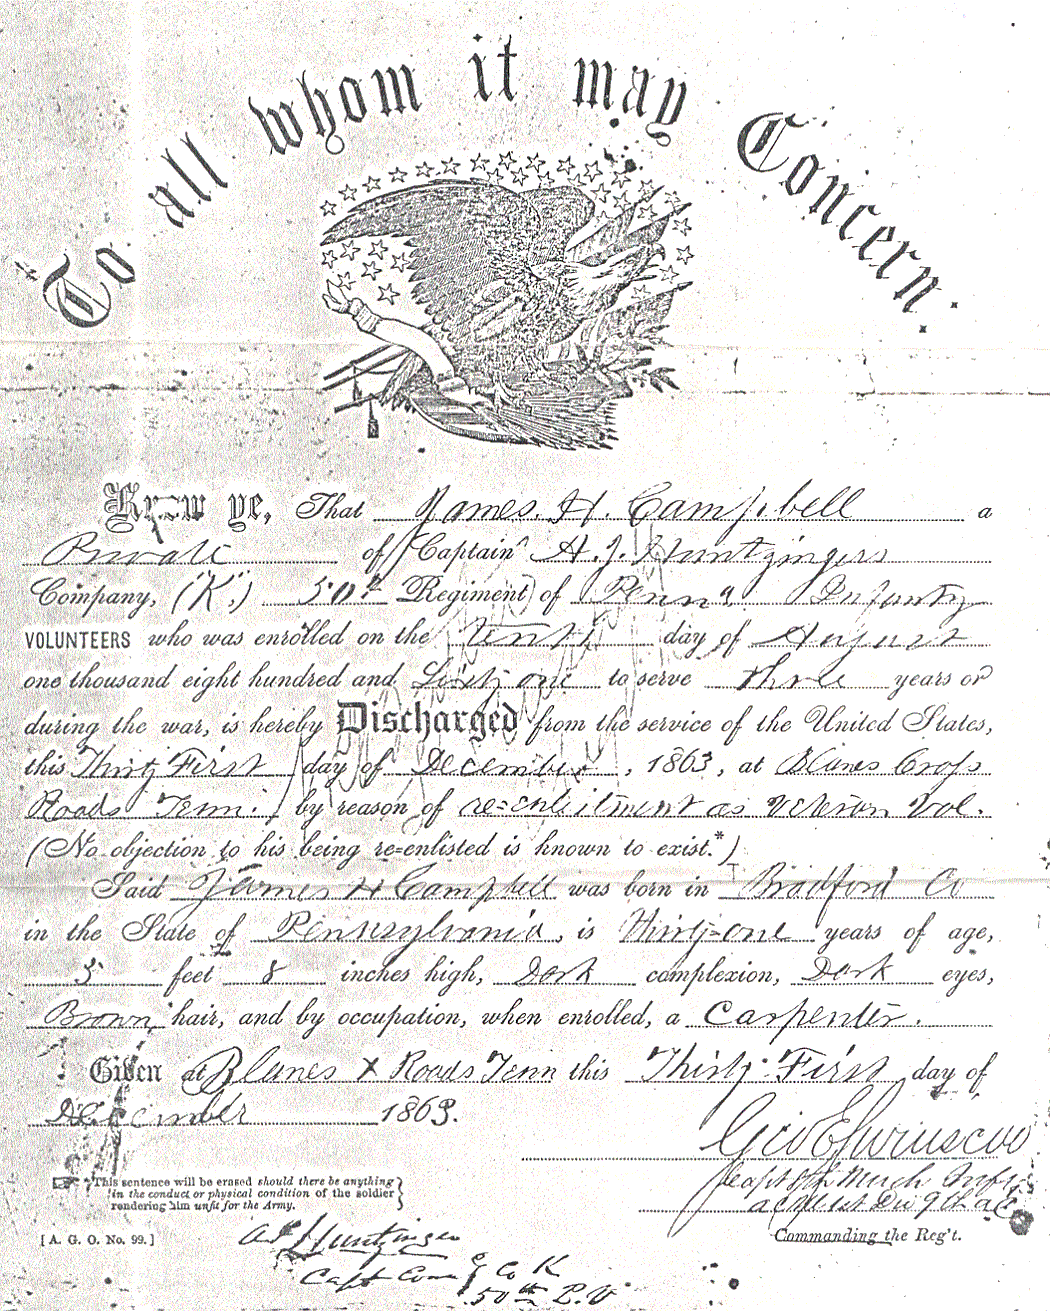 To all whom it may Concern:
Know ye, That James. H. Campbell a
Private of Captain A. J. Huntzingers
Company, ("K",) 50th Regiment of Penna. Infantry
VOLUNTEERS who was enrolled on the Tenth day of August
one thousand eight hundred and Sixty one to serve three years or
during the war, is hereby Discharged from the service of the United States,
this Thirty First day of December, 1863, at Blanes Cross
Roads Tenn. by reason of re=enlistment as Veteran Vol.
(No objection to his being re=enlisted is known to exist.*)
Said James H Campbell was born in Bradford Co
in the State of Pennsylvania, is thirty=one years of age,
5 feet 8 inches high, Dark complexion, Dark eyes,
Brown hair, and by occupation, when enrolled, a Carpenter.
Given at Blanes X Roads Tenn this Thirty First day of
December 1863.
Capt 8th Mich Infy
1st Div 9th A.C.
☞ *This sentence will be erased should there be anything
in the conduct or physical condition of the soldier
rendering him unfit for the Army.
Commanding the Reg't.
[A. G. O. No. 99.]
Huntzinger
Capt Comg Co K
50th P. V